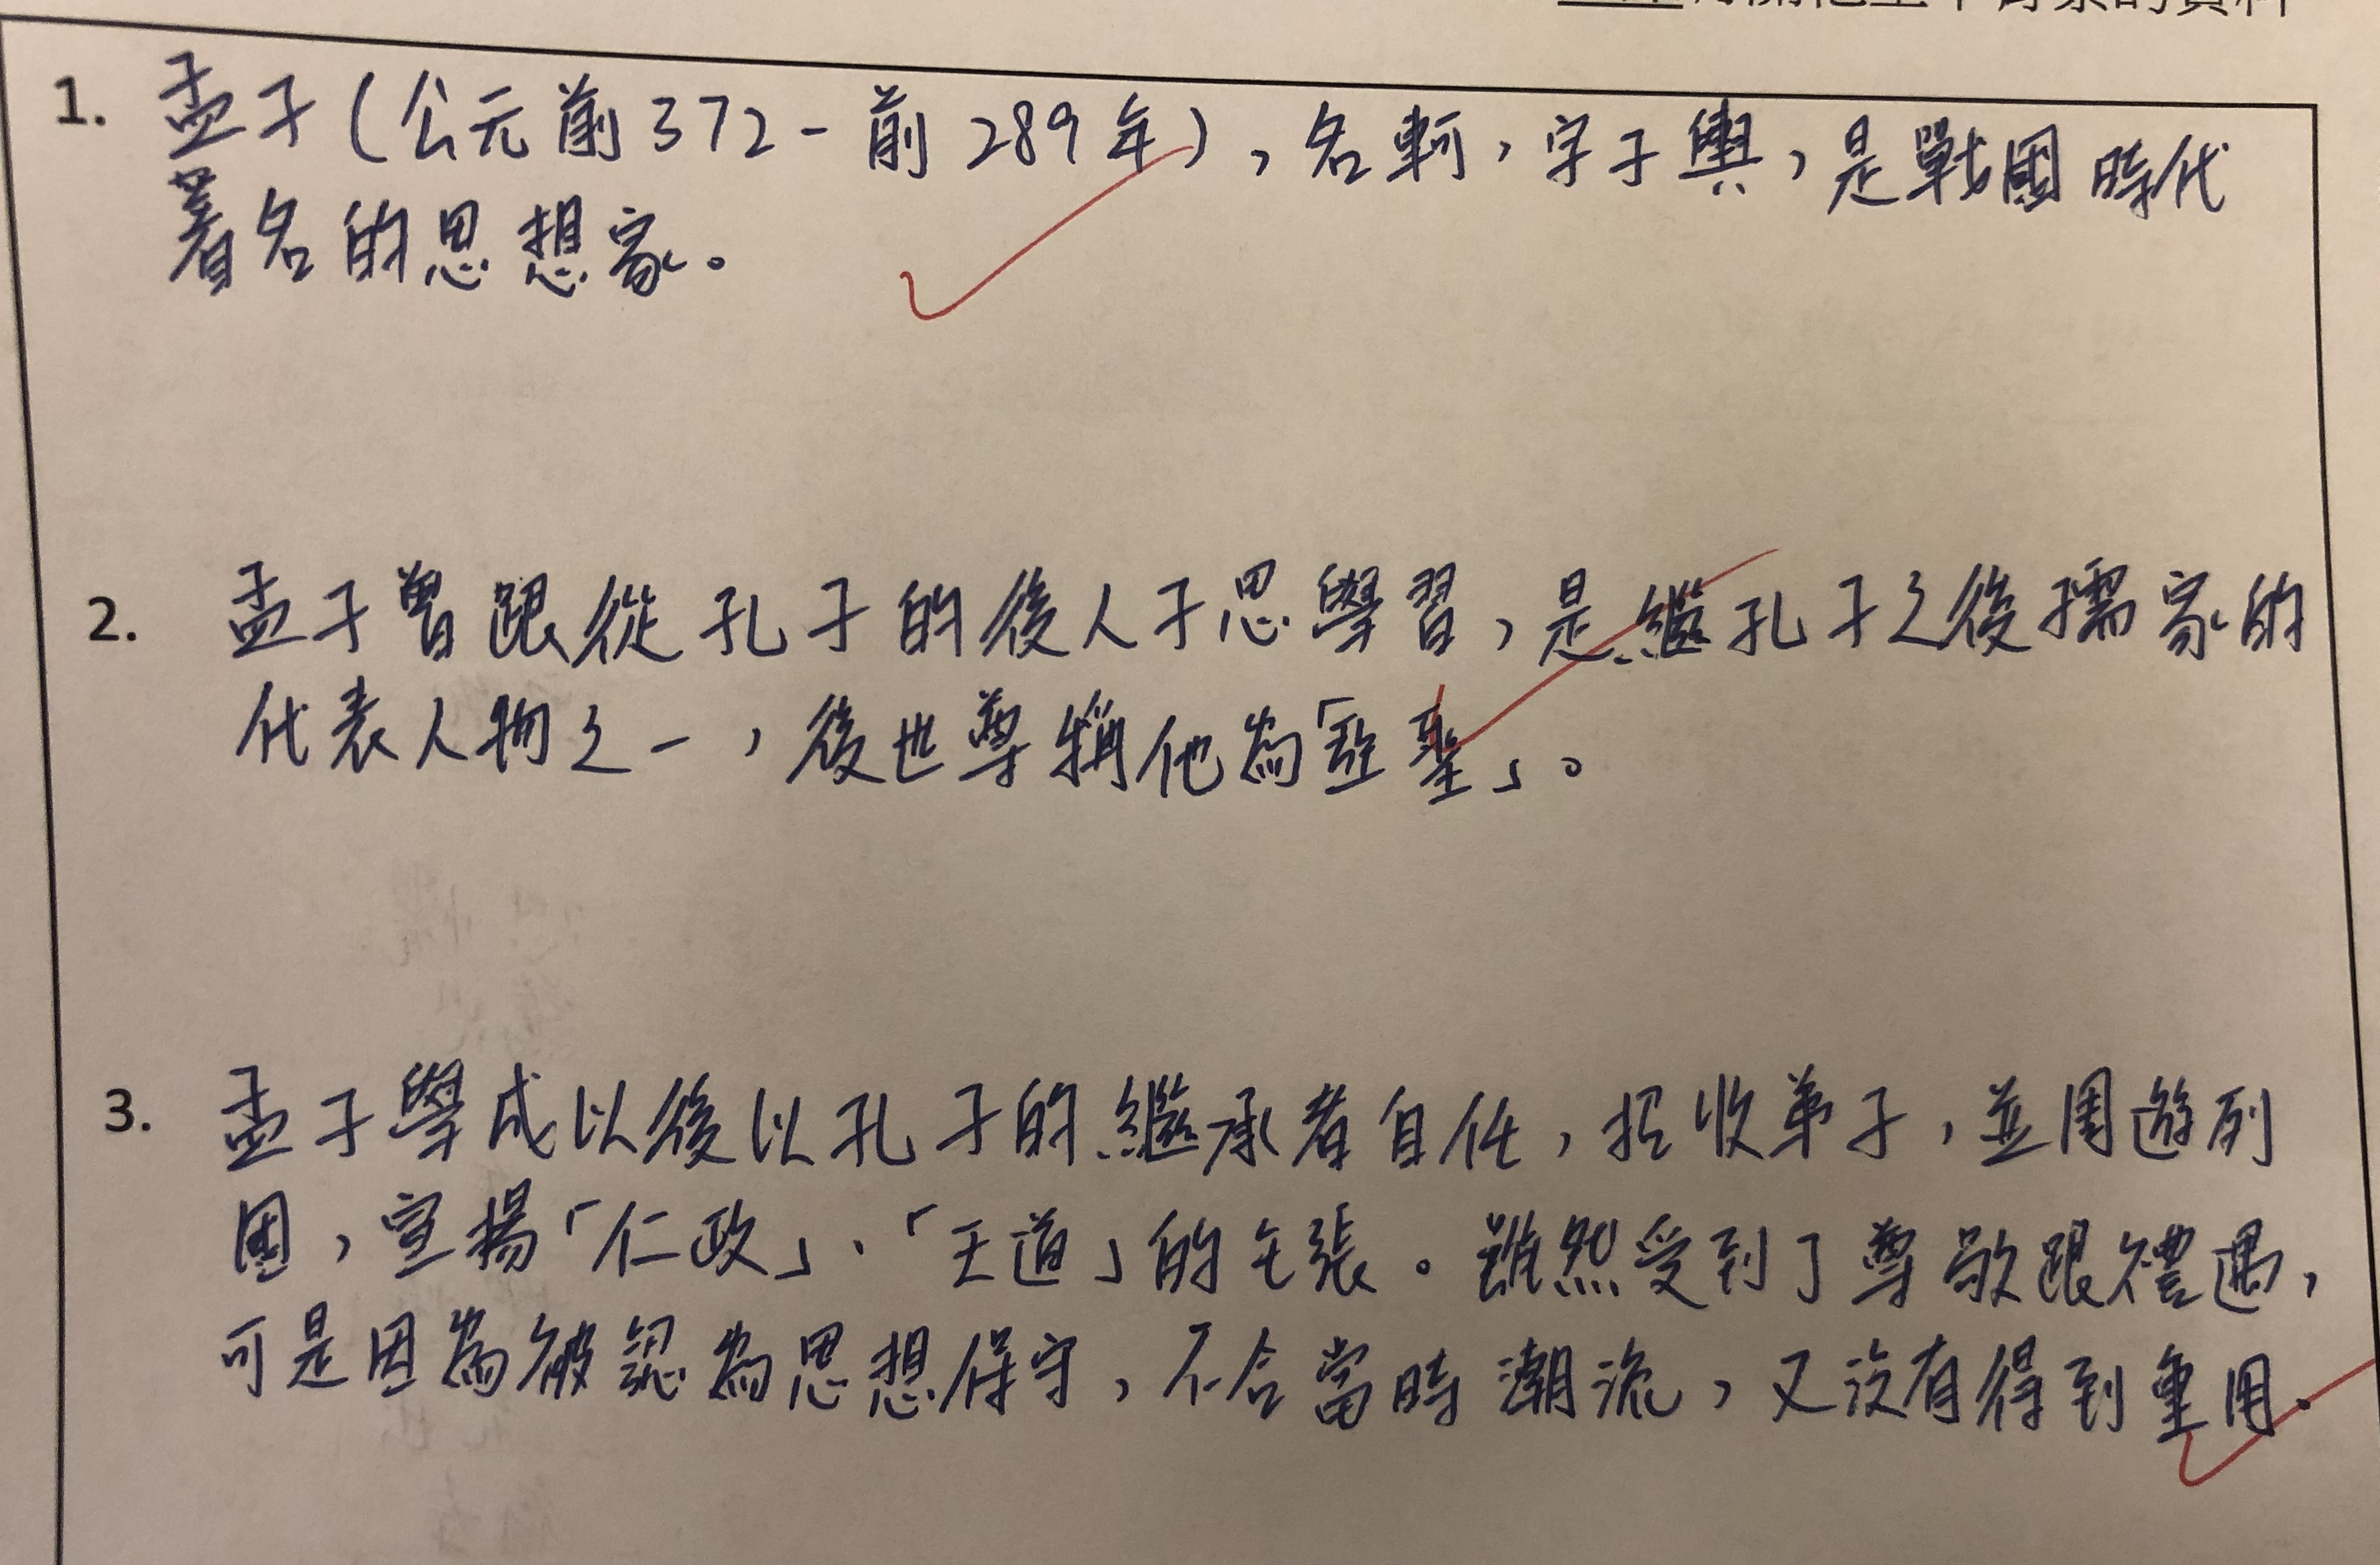 生平背景的資料
1. 孟子(公元前372-前289年),名軻,字子輿,是戰國時代
著名的思想家。
2. 孟子曾跟從孔子的後人子思學習,是繼孔子之後孺家的
代表人物之一,後世尊稱他為「亞聖」。
3. 孟子學成以後以孔子的繼承者自任,招收弟子,並周遊列
國,宣揚「仁政」、「王道」的主張。雖然受到了尊敬跟禮遇,
可是因為被認為思想保守,不合當時潮流,又沒有得到重用。